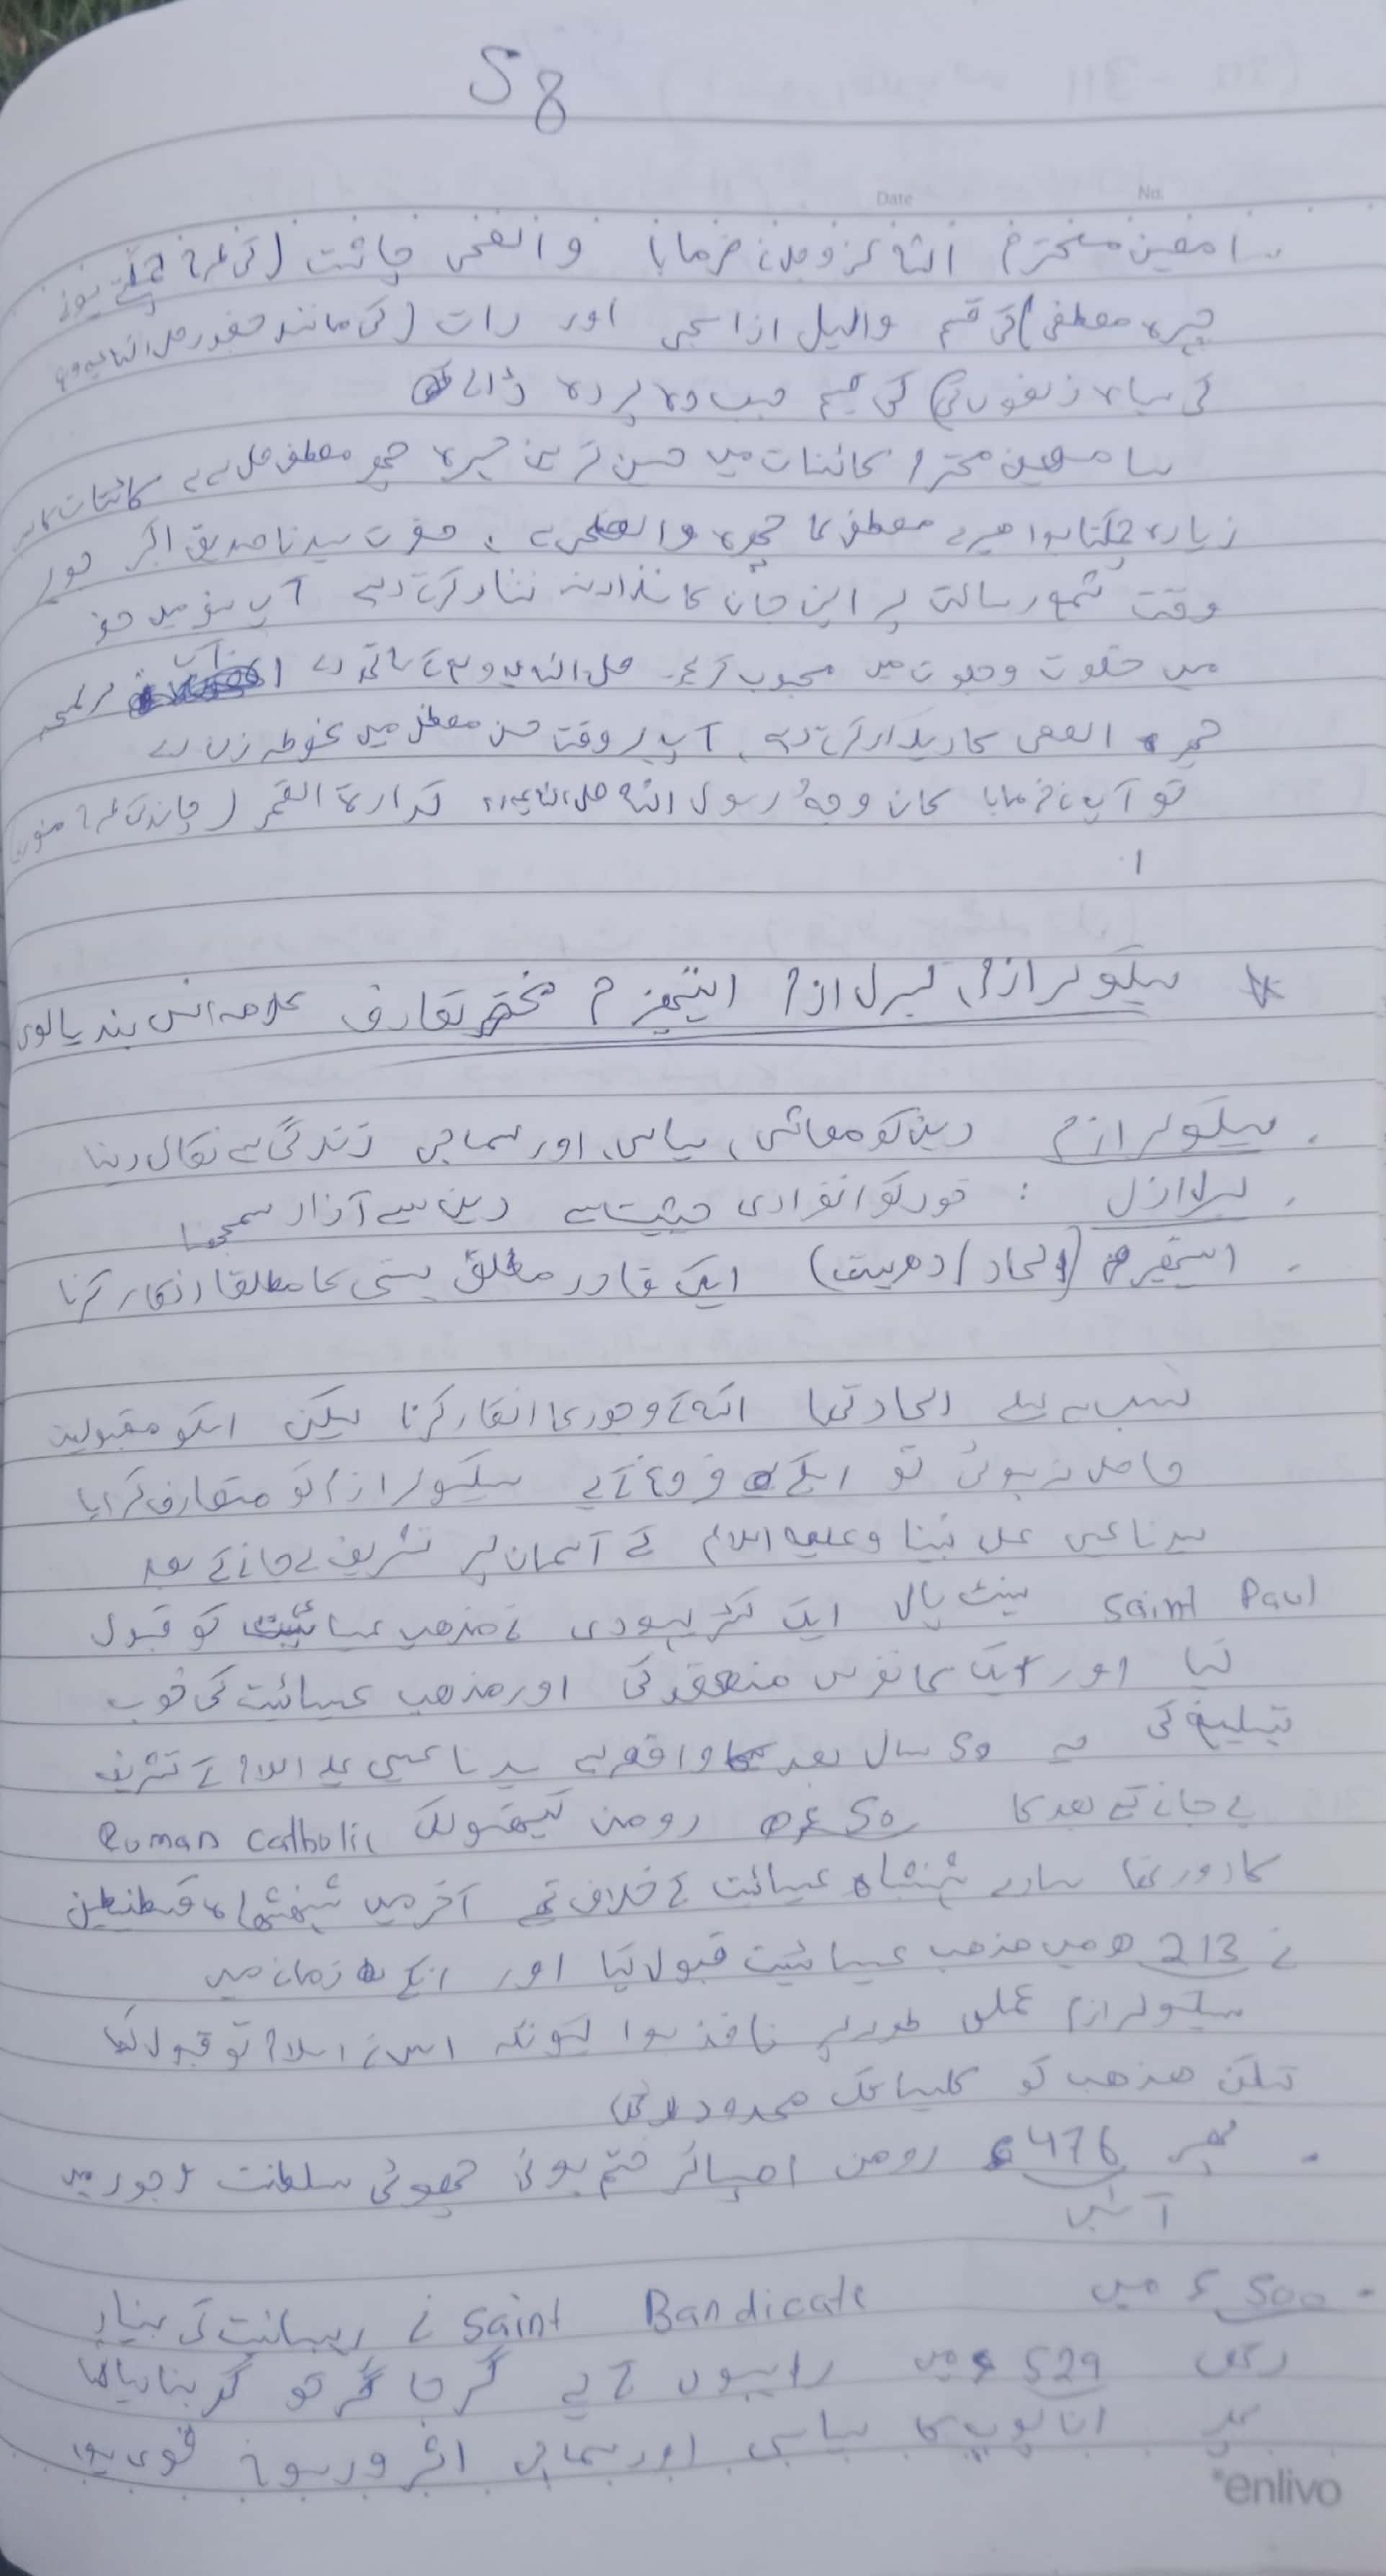 58
Date No.
سامعین محترم اللہ عزوجل نے فرمایا والضحی چاشت (کی طرح چمکتے ہوئے
چہرہ مصطفی) کی قسم والیل اذا سجی اور رات (کی مانند حضور صلی اللہ علیہ وسلم
کی سیاہ زلفوں) کی قسم جب وہ پردہ ڈالے
سامعین محترم کائنات میں حسین ترین چہرہ مصطفی صلی ہے کائنات کا سب
زیادہ چمکتا ہوا میرے مصطفی کا چہرہ والضحی ہے . حضرت سیدنا صدیق اکبر
وقت شمع رسالت پر اپنی جان کا نذرانہ نثار کرتے رہے آپ سفر میں
میں خلوت وجلوت میں محبوب صلی اللہ علیہ وسلم کے ساتھ رہے آپ ہر لمحہ
چہرہ الضحی کا دیدار کرتے رہے . آپ ہر وقت حسن مصطفی میں غوطہ زن رہے
تو آپ نے فرمایا کان وجہ رسول اللہ صلی اللہ علیہ وسلم کدارۃ القمر (چاند کی طرح منور
* سیکولرازم، لبرل ازم ایتھیزم مختصر تعارف علامہ انس بندیالوی
. سیکولرازم دین کو معاشی، سیاسی، اور سماجی زندگی سے نکال دینا
. لبرلازل : خود کو انفرادی حیثیت سے دین سے آزاد سمجھنا
. ایتھیزم (الحاد/دھریت) ایک قادر مطلق ہستی کا مطلقا انکار کرنا
سب سے پہلے الحاد تھا اللہ کے وجود کا انکار کرنا لیکن اسکو مقبولیت
حاصل نہ ہوئی تو اسکے فروغ کے لیے سیکولرازم کو متعارف کرایا
سیدنا عیسی علی نبینا وعلیہ السلام کے آسمان پر تشریف لے جانے کے بعد
Saint Paul سینٹ پال ایک کٹر یہودی نے مذھب عیسائیت کو قبول
کیا اور ایک کانفرنس منعقد کی اور مذھب عیسائیت کی خوب
تبلیغ کی یہ 50 سال بعد کا واقعہ ہے سیدنا عیسی علیہ السلام کے تشریف
لے جانے کے بعد کا 50ء رومن کیتھولک Roman Catholic
کا دور تھا سارے شہنشاہ عیسائیت کے خلاف تھے آخر میں شہنشاہ قسطنطین
نے 213 ء میں مذھب عیسائیت قبول کیا اور انکے زمانے میں
سیکولرازم عملی طور پر نافذ ہوا کیونکہ اس نے اسلام تو قبول کیا
لیکن مذھب کو کلیسا تک محدود رکھا
. پھر 476ء رومن امپائر ختم ہوئی چھوٹی سلطنت وجود میں
آئیں
. 500ء میں Saint Bandicate نے رہبانیت کی بنیاد
رکھی 529ء میں راہبوں کے لیے گرجا گھر کو گھر بنایا
پھر انا پوپ کا سیاسی اور سماجی اثر ورسوخ قوی ہو
enlivo